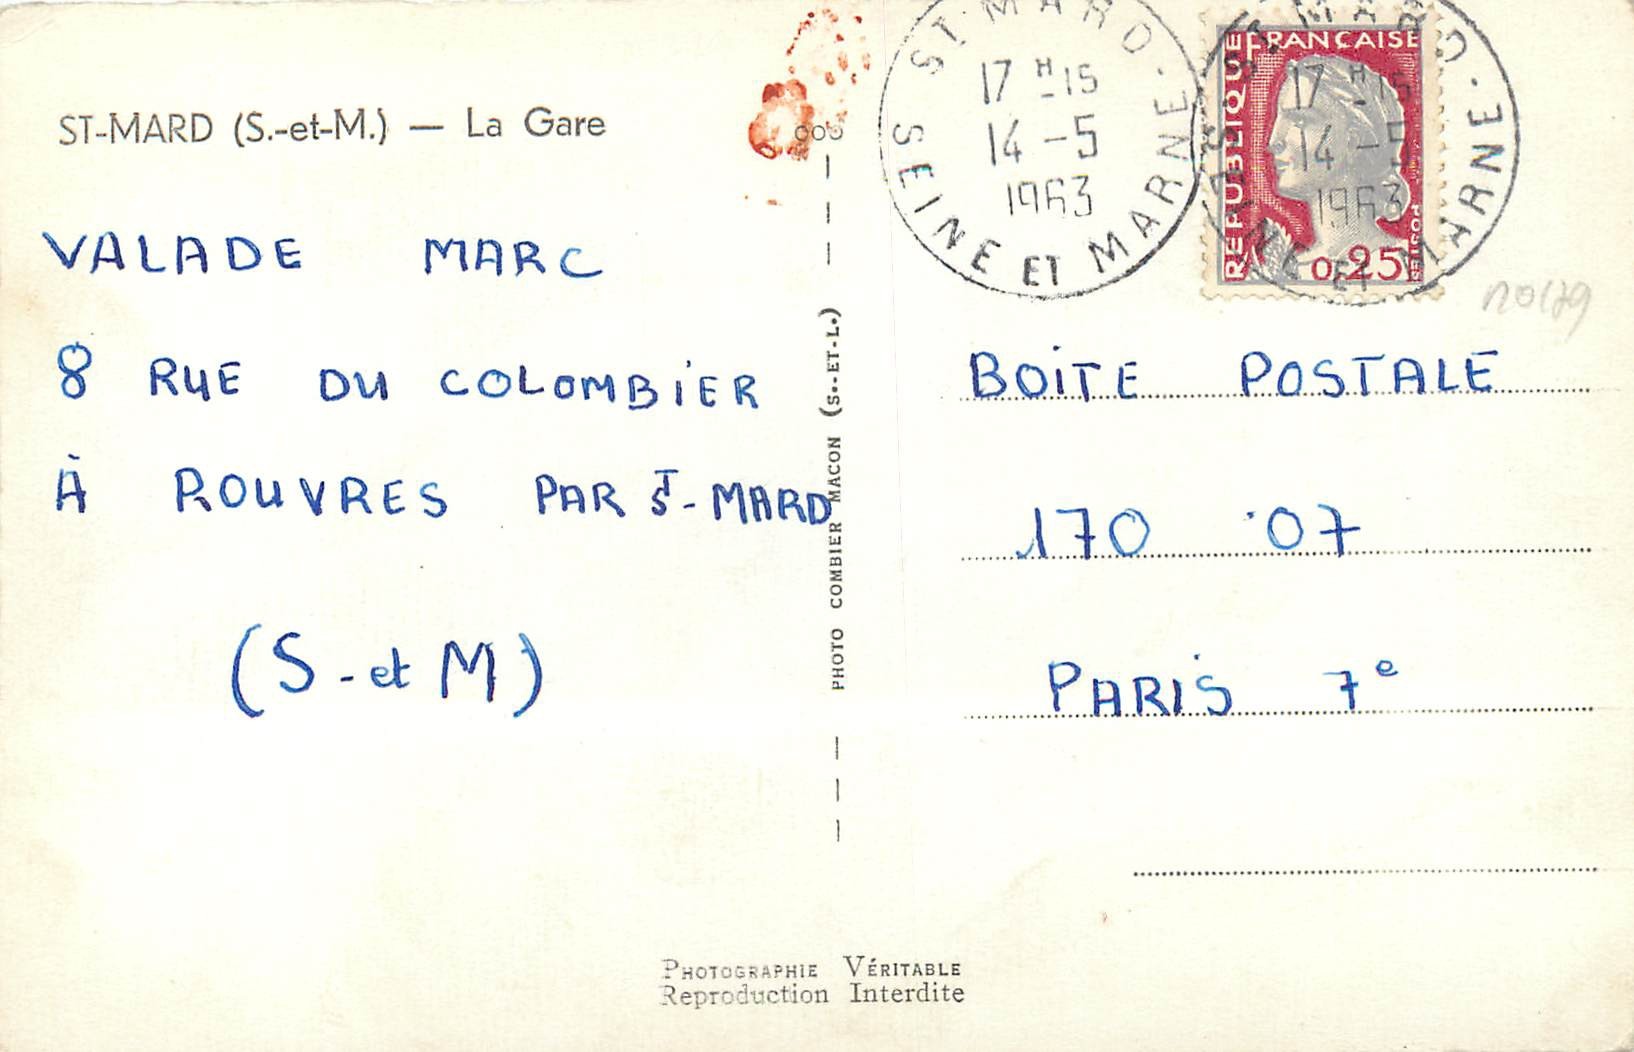 ST-MARD (S.-et-M.) — La Gare
VALADE MARC
8 RUE DU COLOMBIER
À ROUVRES PAR ST-MARD
(S-et M)
PHOTO COMBIER MACON (S.-ET-L.)
ST MARD
17 H 15
14 - 5
1963
SEINE ET MARNE
ST MARD
17 H 15
14 - 5
1963
SEINE ET MARNE
REPUBLIQUE FRANÇAISE
0,25
POSTES
BOITE POSTALE
170 07
PARIS 7e
PHOTOGRAPHIE VÉRITABLE
Reproduction Interdite